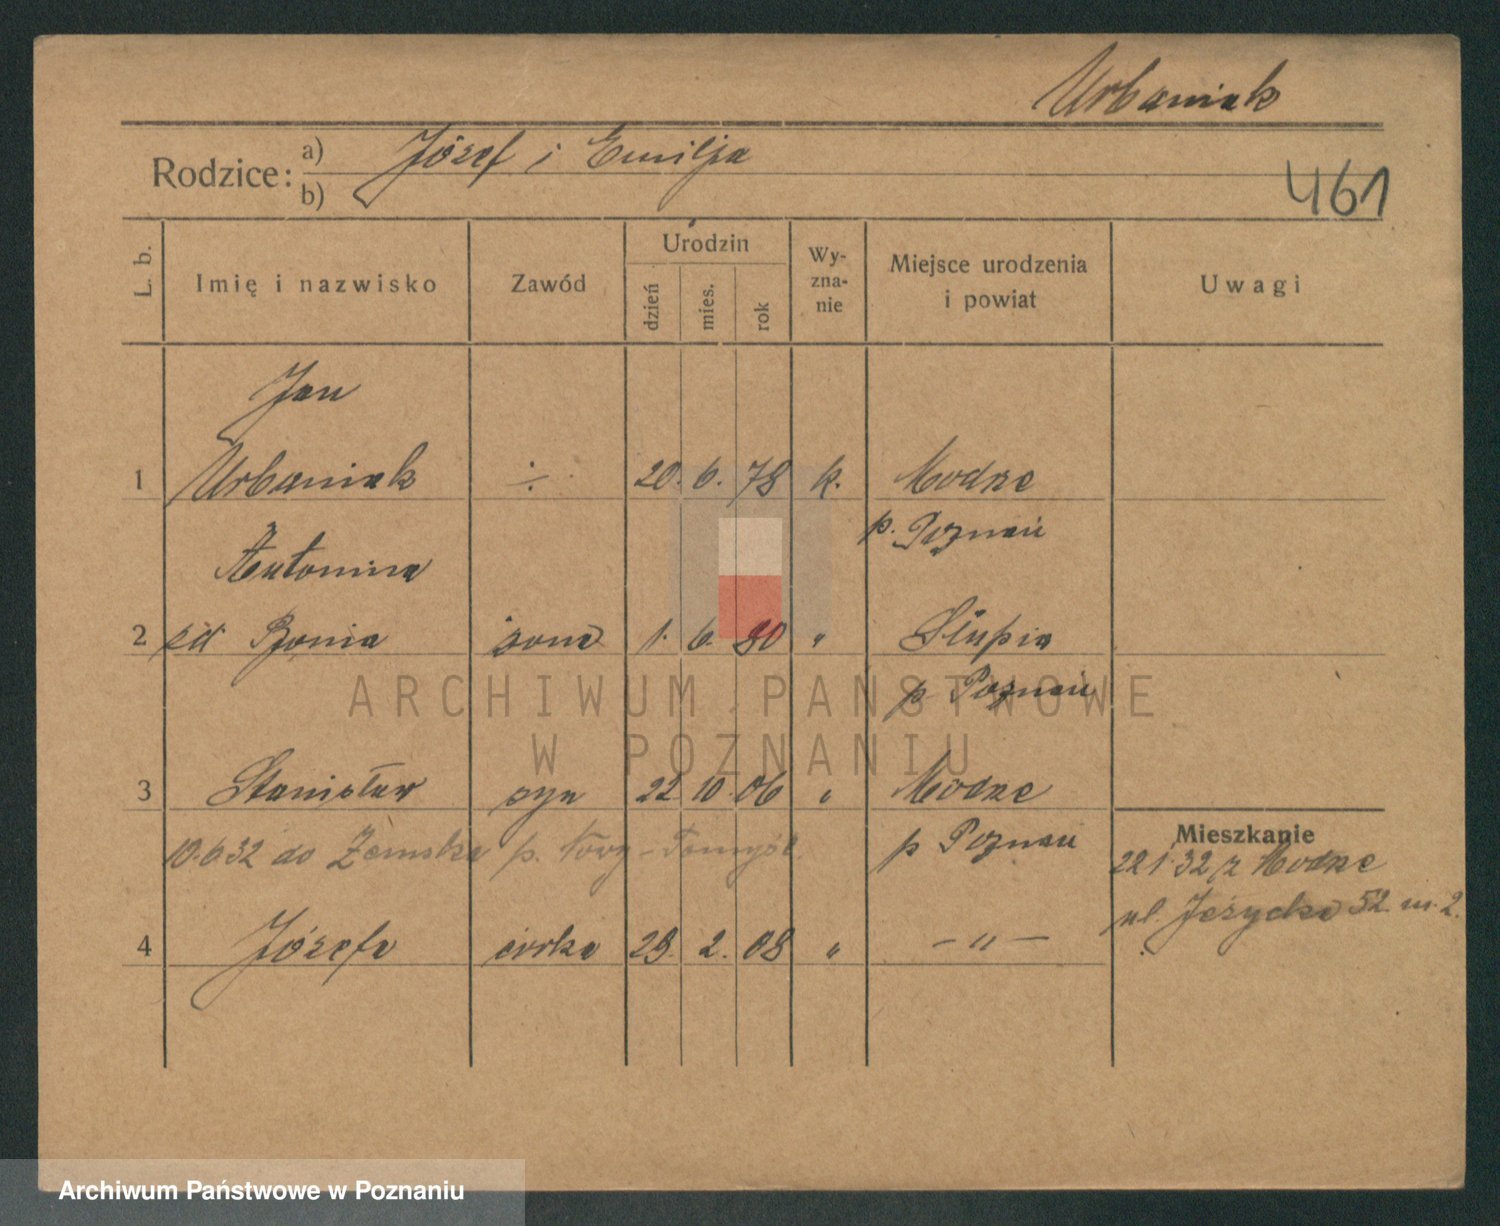 Urbaniak
Rodzice: a) Józef i Emilja
b)
461
L. b.
Imię i nazwisko
Zawód
Urodzin
dzień
mies.
rok
Wy-
zna-
nie
Miejsce urodzenia
i powiat
Uwagi
Jan
1 Urbaniak ÷ 20. 6. 78 k. Modrze
p. Poznań
Antonina
2 żona 1. 6. 80 " Słupia
p. Poznań
3 Stanisław syn 22 10. 06 " Modrze
p Poznań
10.6.32 do p. Nowy-Tomyśl.
4 Józefa córka 29. 2. 08 " -"-
Mieszkanie
22 1. 32 z Modrze
ul. Jeżycka 52 m. 2.
ARCHIWUM PAŃSTWOWE
W POZNANIU
Archiwum Państwowe w Poznaniu